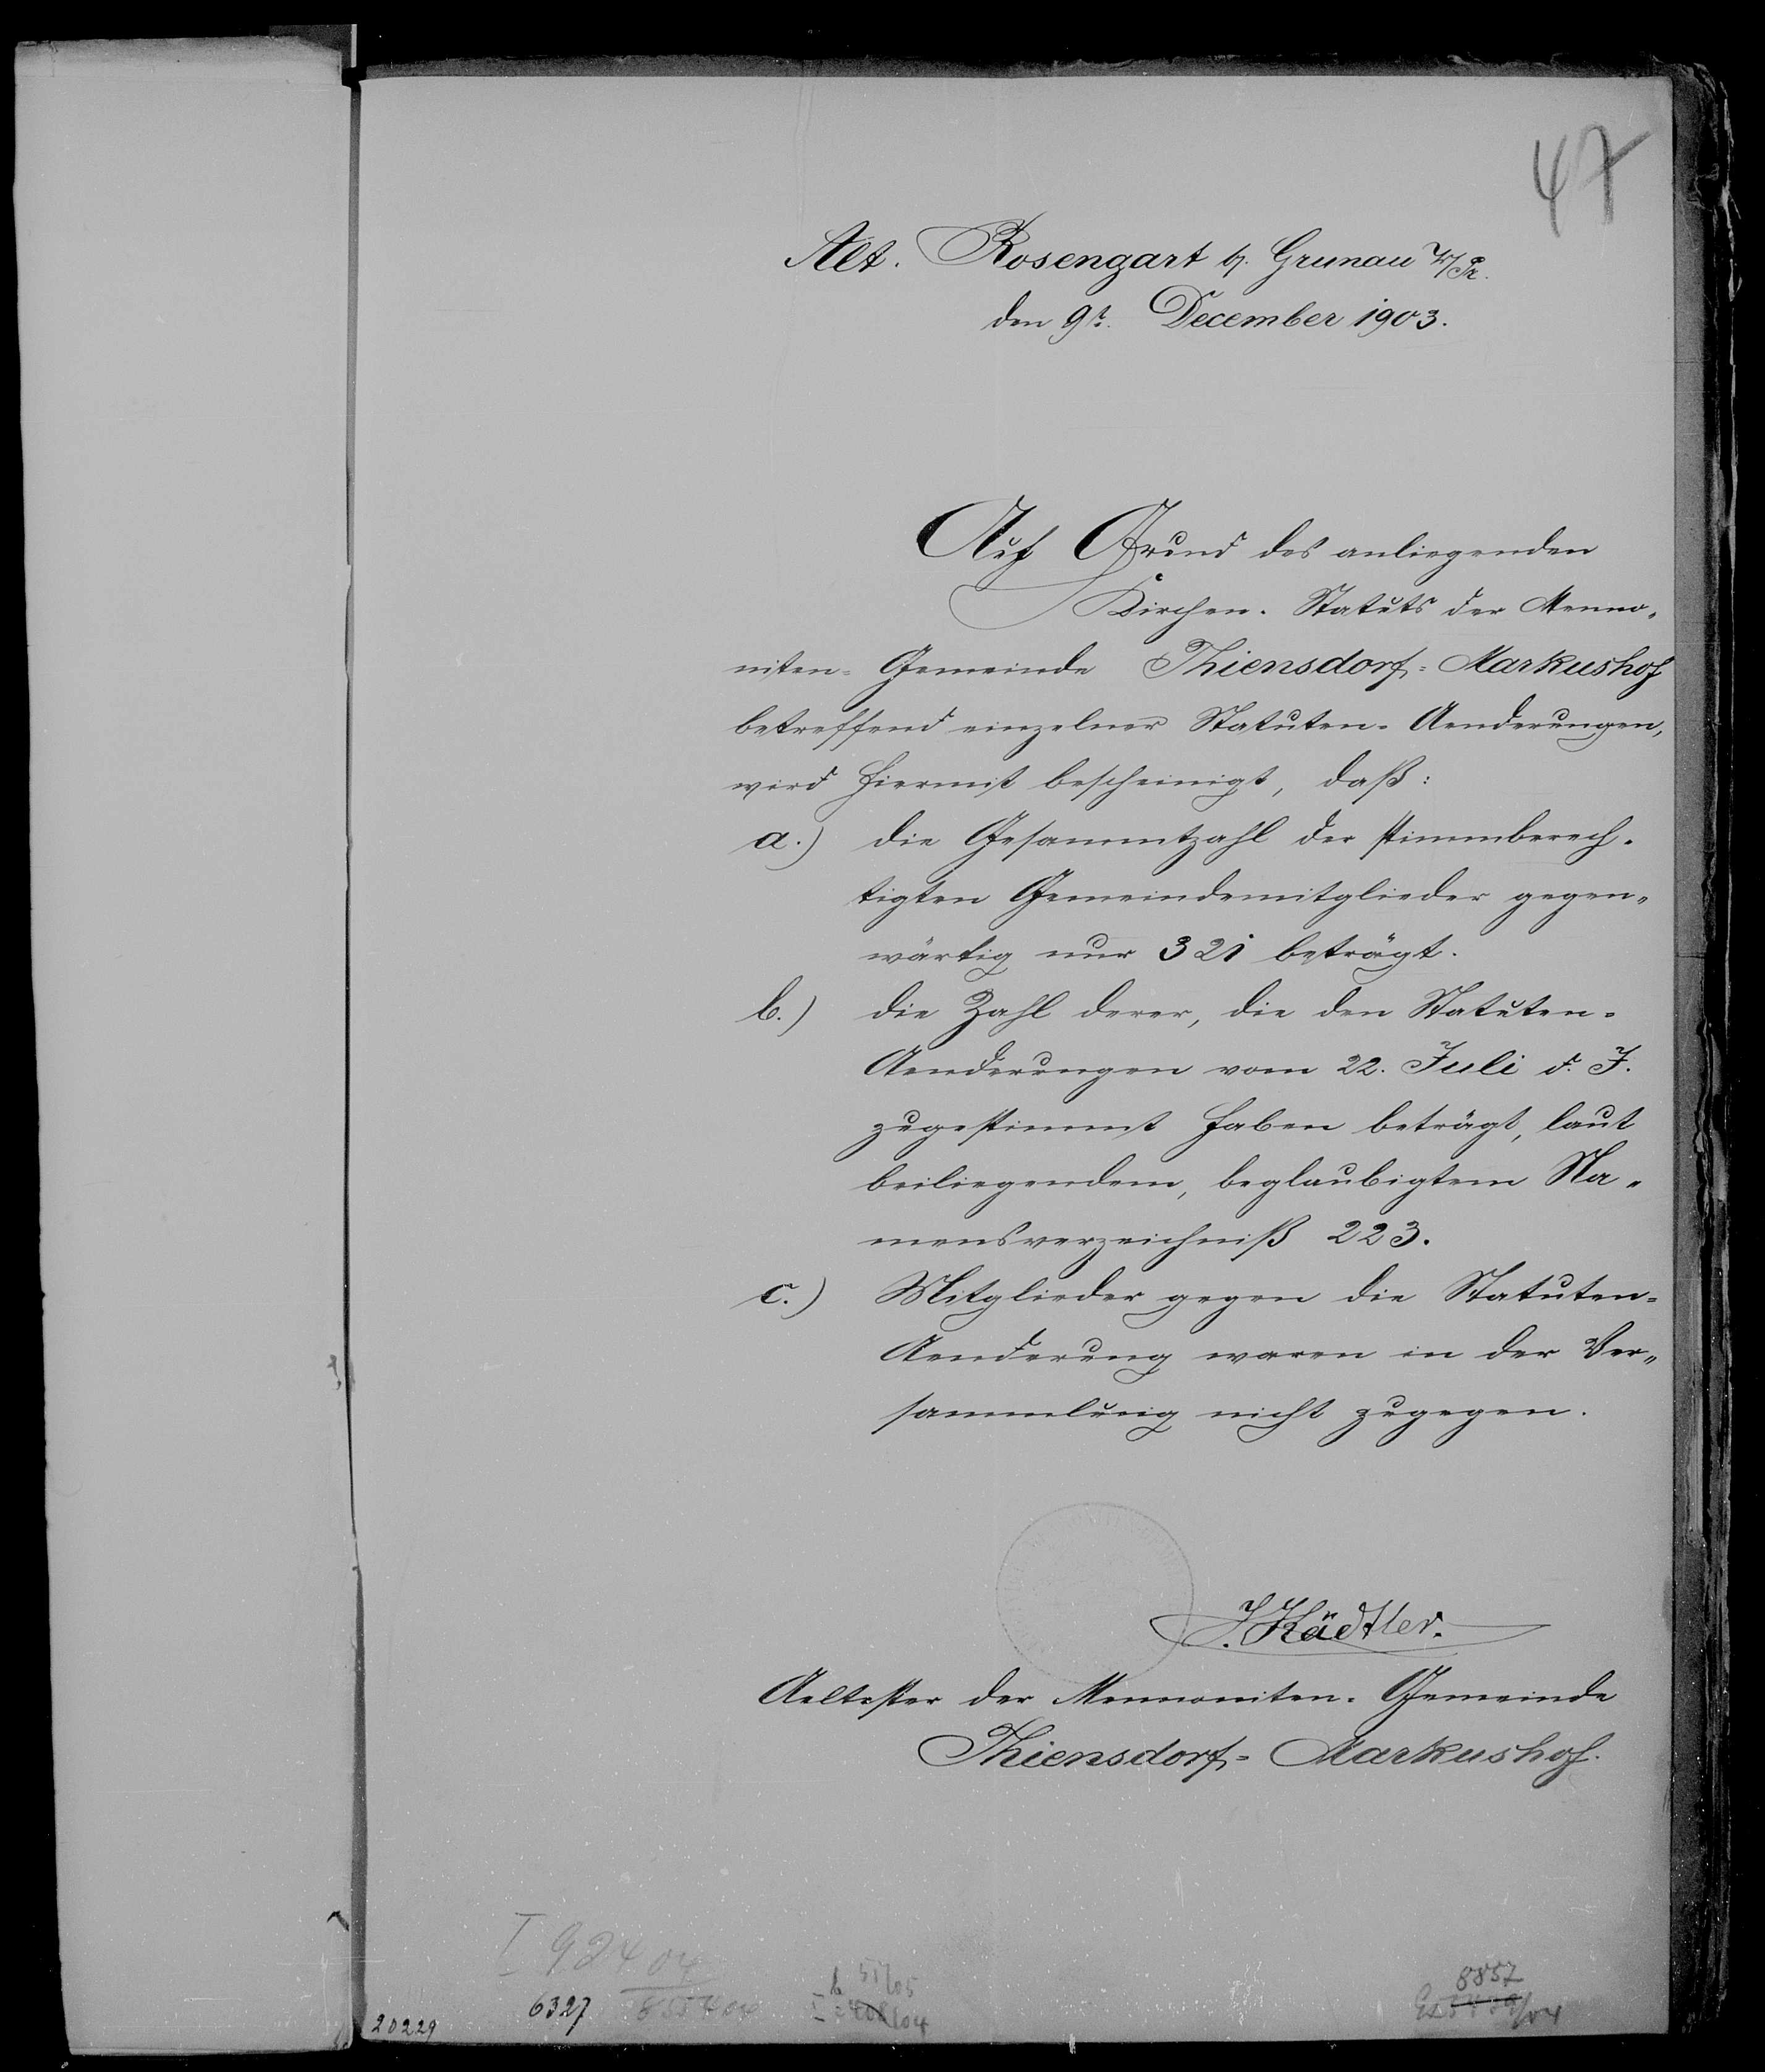 47
Alt. Rosengart b. Grunau W/Pr.
den 9t. December 1903.
Auf Grund des anliegenden
Kirchen-Statuts der Menno-
niten-Gemeinde Thiensdorf-Markushof
betreffend einzelner Statuten-Aenderungen,
wird hiermit bescheinigt, daß:
a.) die Gesammtzahl der stimmberech-
tigten Gemeindemitglieder gegen-
wärtig nur 321 beträgt.
b.) die Zahl derer, die den Statuten-
Aenderungen vom 22. Juli d. J.
zugestimmt haben beträgt, laut
beiliegendem, beglaubigtem Na-
mensverzeichniß 223.
c.) Mitglieder gegen die Statuten-
Aenderung waren in der Ver-
sammlung nicht zugegen.
J. Kädtler.
Aeltester der Mennoniten-Gemeinde
Thiensdorf-Markushof.
I 924 04
6327
51/05
8857
20229